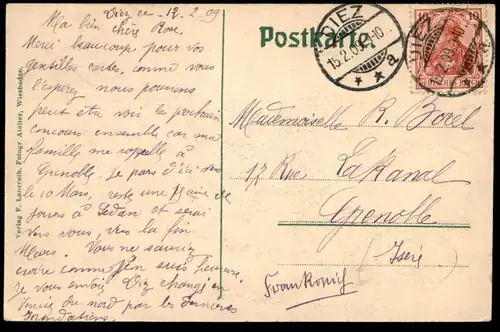 Diez ce 12.2.09
Ma bien chère Rose.
Merci beaucoup pour vos
gentilles cartes, comme vous
l'espérez nous pouvons
peut être voir la prochain
concours ensemble car ma
famille me rappelle à
Grenoble, je pars d'ici
le 10 Mars, reste une
jours à Sedan et serai
vers vous, vers la fin
Mars. Vous ne saurez
croire comme j'en suis heureuse,
je vous envoi Diez changé en
Venise du nord par les dernières
Inondations
Verlag F. Lanzrath, Fotogr. Atelier, Wiesbaden.
Postkarte.
DIEZ
15.2.09. 9-10
* * a
10 10
DIEZ
Mademoiselle R. Borel
17 Rue Lakanal
Grenoble
(Isère)
Frankreich